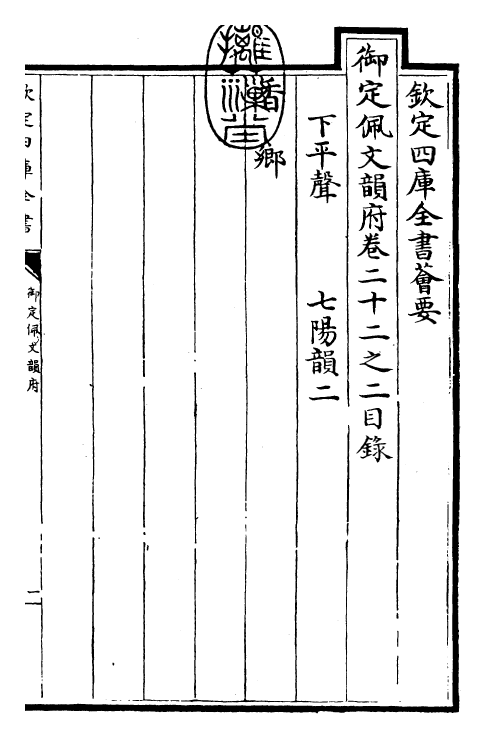 欽定四庫全書薈要
御定佩文韻府卷二十二之二目錄
下平聲 七陽韻二
香 鄉
摛藻堂
欽定四庫全書
御定佩文韻府
二